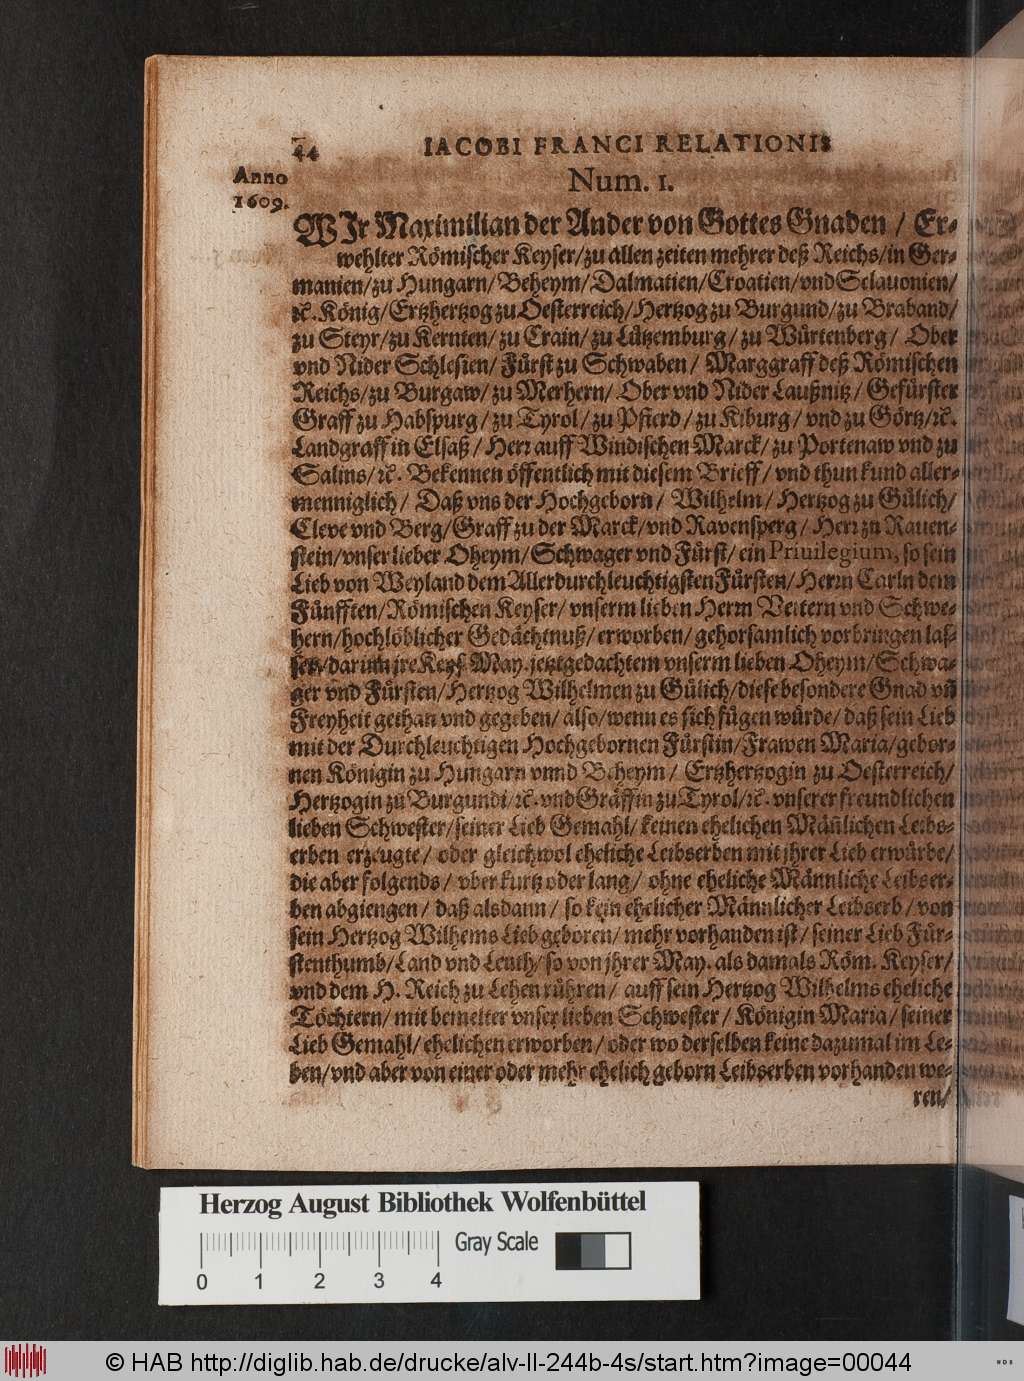 44
IACOBI FRANCI RELATIONIS
Anno
1609.
Num. 1.
WIr Maximilian der Ander von Gottes Gnaden / Er-
wehlter Römischer Keyser/zu allen zeiten mehrer deß Reichs/in Ger-
manien/zu Hungarn/Beheym/Dalmatien/Croatien/vnd Sclauonien/
ꝛc. König/Ertzhertzog zu Oesterreich/Hertzog zu Burgund/zu Braband/
zu Steyr/zu Kernten/zu Crain/zu Lützemburg/zu Würtenberg/ Ober
vnd Nider Schlesien/Fürst zu Schwaben/ Marggraff deß Römischen
Reichs/zu Burgaw/zu Merhern/ Ober vnd Nider Laußnitz/ Gefürster
Graff zu Habspurg/zu Tyrol/zu Pfierd/zu Kiburg/ vnd zu Görtz/ꝛc.
Landgraff in Elsäß/Herr auff Windischen Marck/zu Portenaw vnd zu
Salins/ꝛc. Bekennen öffentlich mit diesem Brieff/ vnd thun kund aller-
menniglich/ Daß vns der Hochgeborn/ Wilhelm/ Hertzog zu Gülich/
Cleve vnd Berg/Graff zu der Marck/vnd Ravensperg/ Herr zu Rauen-
stein/vnser lieber Oheym/Schwager vnd Fürst/ein Priuilegium, so sein
Lieb von Weyland dem Allerdurchleuchtigsten Fürsten/Herrn Carln dem
Fünfften/Römischen Keyser/vnserm lieben Herrn Vettern vnd Schwe-
hern/hochlöblicher Gedächtnuß/erworben/gehorsamlich vorbringen las-
sen/darinn jre Keys. May. jetztgedachtem vnserm lieben Oheym/Schwa-
ger vnd Fürsten/Hertzog Wilhelmen zu Gülich/diese besondere Gnad vñ
Freyheit gethan vnd gegeben/also/wenn es sich fügen würde/daß sein Lieb
mit der Durchleuchtigen Hochgebornen Fürstin/Frawen Maria/gebor-
nen Königin zu Hungarn vnnd Beheym/ Ertzhertzogin zu Oesterreich/
Hertzogin zu Burgundi/ꝛc. vnd Gräffin zu Tyrol/ꝛc. vnserer freundlichen
lieben Schwester/seiner Lieb Gemahl/keinen ehelichen Mäñlichen Leibs-
erben erzeugte/ oder gleichwol eheliche Leibserben mit jhrer Lieb erwürbe/
die aber folgends/ vber kurtz oder lang/ ohne eheliche Männliche Leibser-
ben abgiengen/ daß alsdann/ so kein ehelicher Männlicher Leibserb/von
sein Hertzog Wilhems Lieb geboren/mehr vorhanden ist/seiner Lieb Für-
stenthumb/Land vnd Leuth/so von jhrer May. als damals Röm. Keyser/
vnd dem H. Reich zu Lehen rühren/ auff sein Hertzog Wilhelms eheliche
Töchtern/ mit bemelter vnser lieben Schwester/ Königin Maria/ seiner
Lieb Gemahl/ehelichen erworben/oder wo derselben keine dazumal im Le-
ben/vnd aber von einer oder mehr ehelich geborn Leibserben vorhanden we-
ren/
Herzog August Bibliothek Wolfenbüttel
Gray Scale
0 1 2 3 4
© HAB http://diglib.hab.de/drucke/alv-ll-244b-4s/start.htm?image=00044